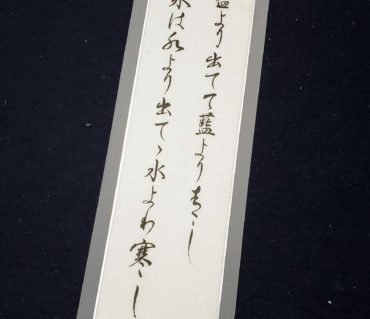 藍より出てて藍より青し
氷は水より出てゝ水よりわ寒し